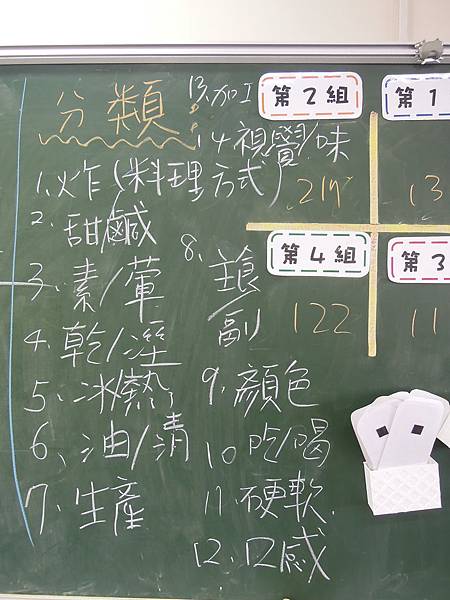 分類
1.炸(料理方式)
2.甜/鹹
3.素/葷
4.乾/溼
5.冰/熱
6.油/清
7.生產
8.主食/副
9.顏色
10.吃/喝
11.硬軟
12.口感
13.加工
14視覺/味
第2組
第1
第4組
122
第3
13
11